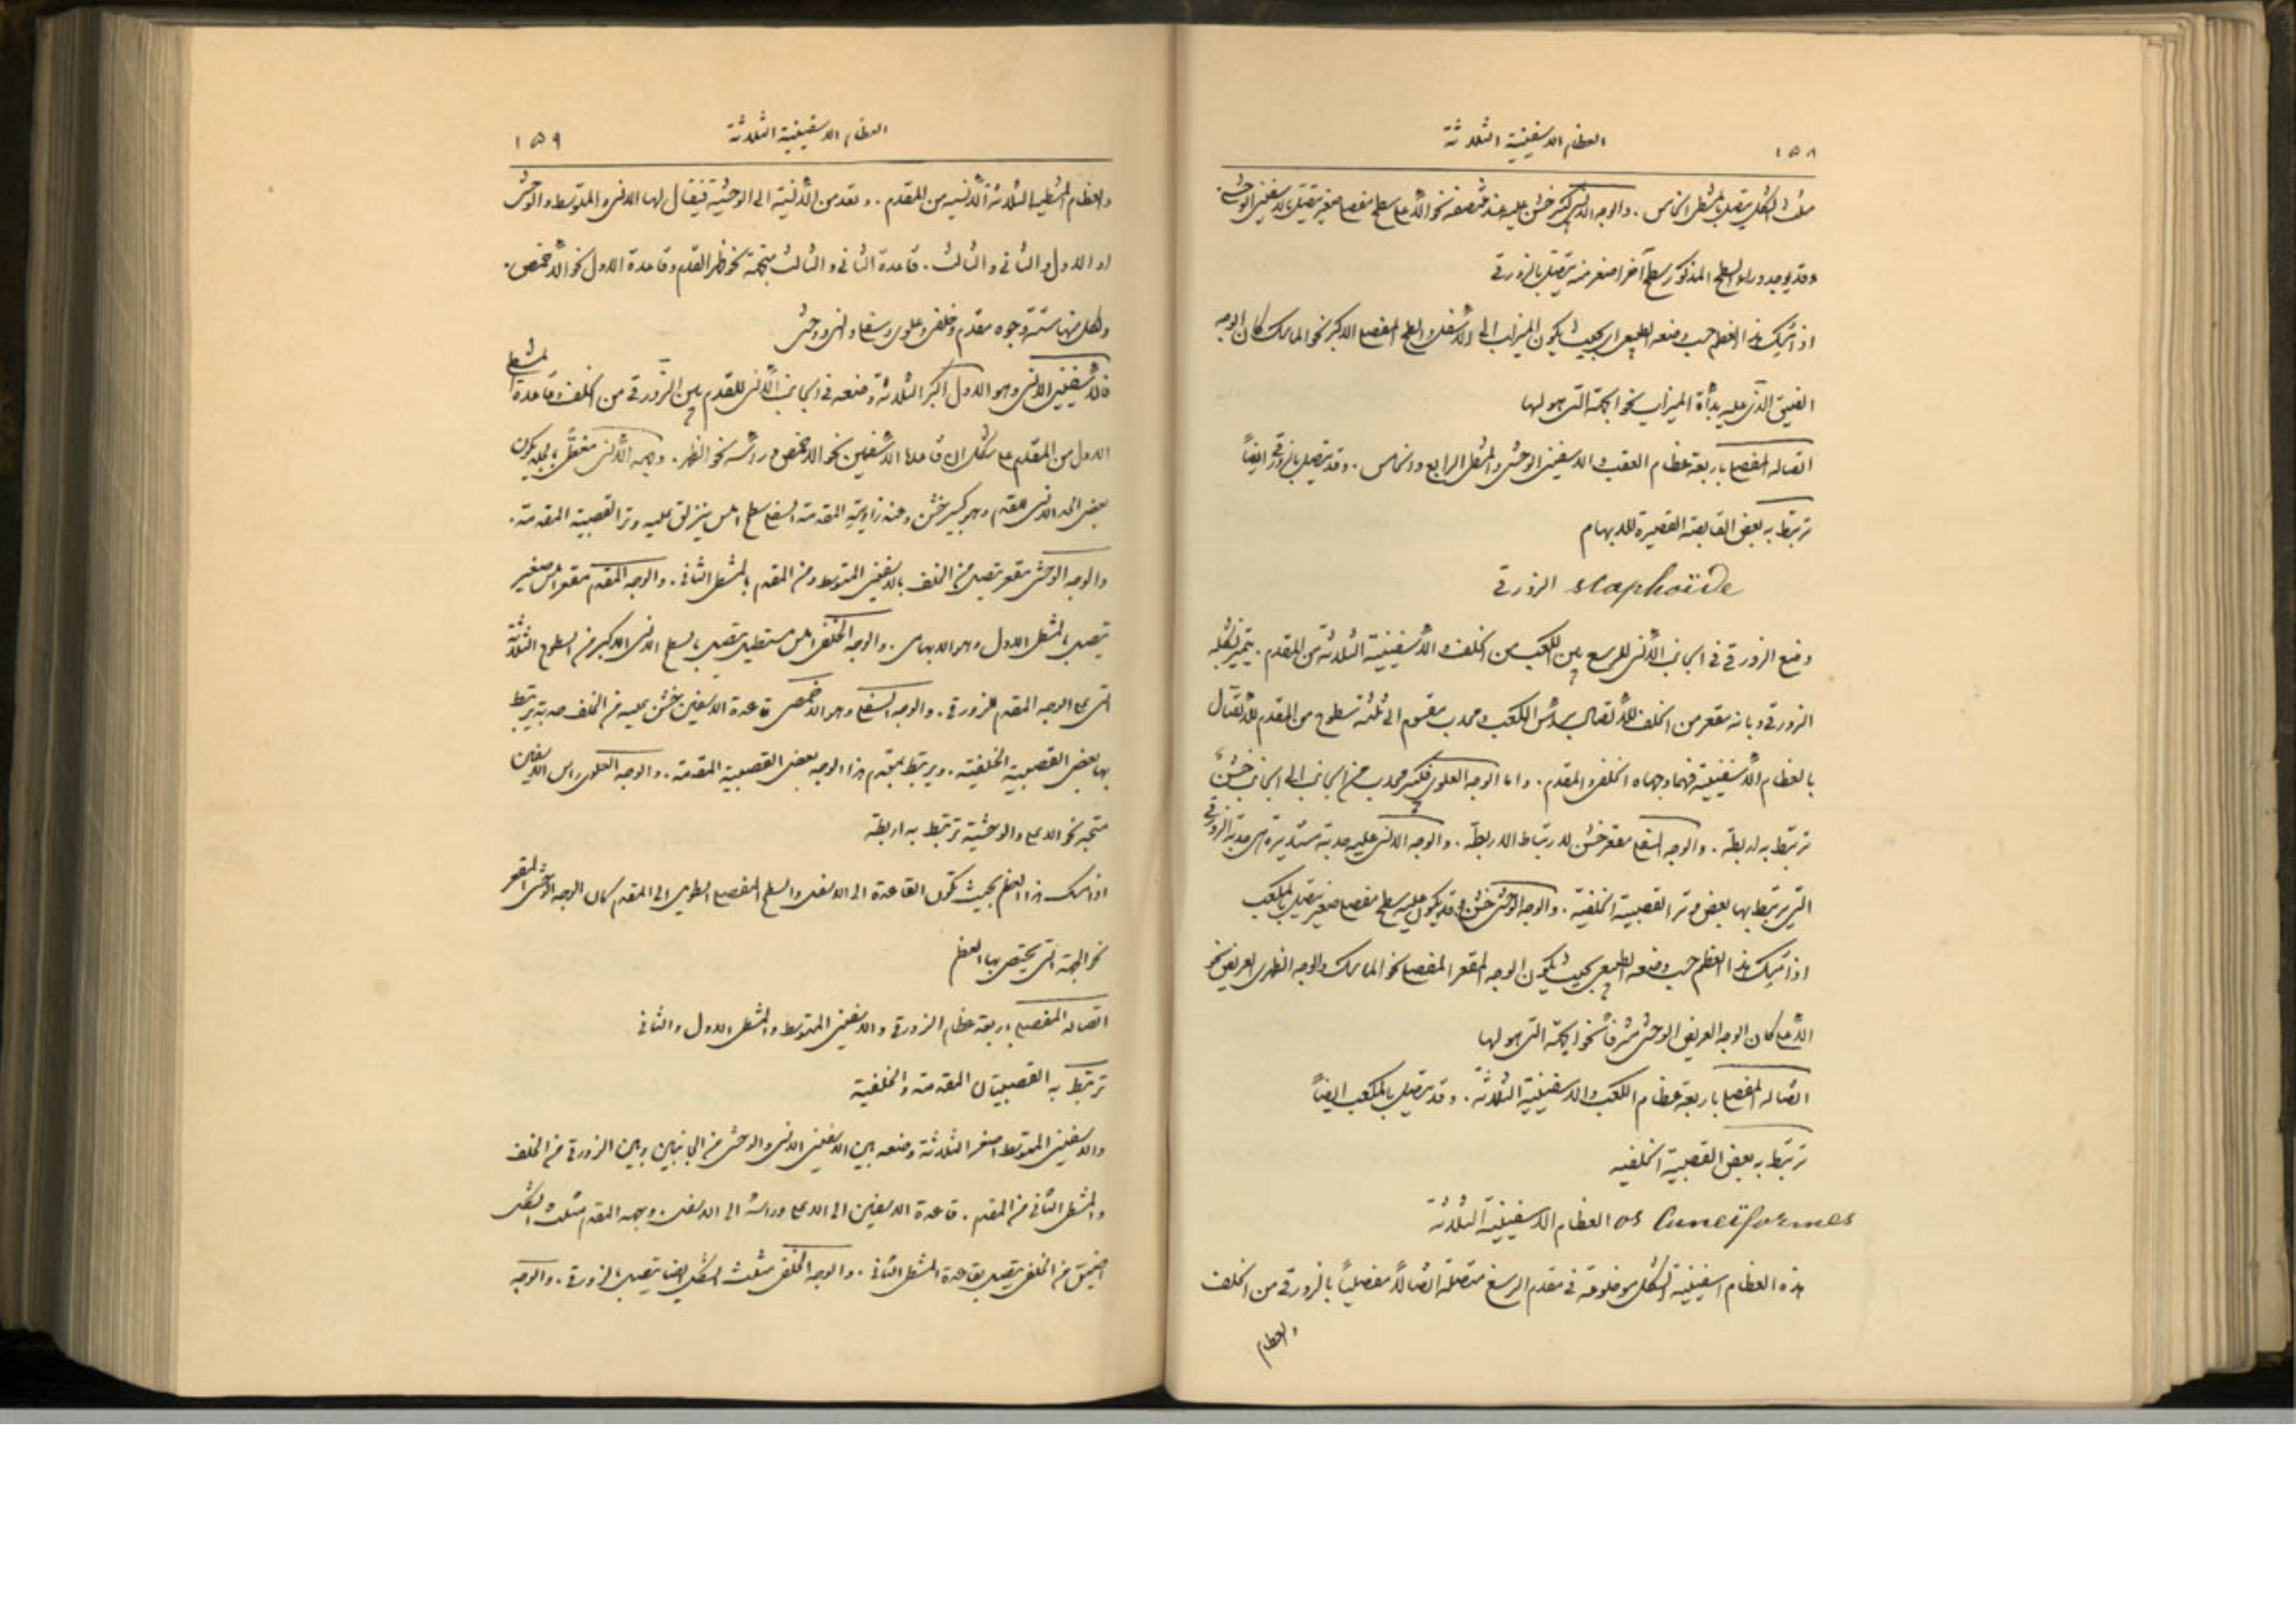 ١٥٨
العظام الاسفينية الثلاثة
مثلث الشكل يتصل بالمشطي الخامس. والوجه الانسي كبير خشن عليه عند منتصفه نحو الأعلى سطح مفصلي صغير يتصل بالاسفيني الوحشي.
وقد يوجد وراء السطح المذكور سطح آخر اصغر منه يتصل بالزورقي
اذا امسك هذا العظم حسب وضعه الطبيعي اي بحيث يكون الميزاب الى الأسفل والسطح المفصلي الاكبر نحو الماسك كان الوجه
الضيق الذي عليه بدأة الميزاب نحو الجهة التي هو لها
اتصاله المفصلي باربعة عظام العقب والاسفيني الوحشي والمشطي الرابع والخامس. وقد يتصل بالزورقي ايضاً
ترتبط به بعض القابضة القصيرة للابهام
الزورقي scaphoïde
وضع الزورقي في الجانب الأنسي للرسغ بين الكعب من الخلف والأسفينية الثلاثة من المقدم. يتميز بشكله
الزورقي وبانه مقعر من الخلف للأتصال برأس الكعب ومحدب مقسوم الى ثلثة سطوح من المقدم للأتصال
بالعظام الأسفينية فهما وجهاه الخلفي والمقدم. واما الوجه العلوي فكبير محدب من الجانب الى الجانب خشن
ترتبط به اربطة. والوجه السفلي مقعر خشن لارتباط الاربطة. والوجه الانسي عليه حدبة مستديرة هي حدبة الزورقي
التي يرتبط بها بعض وتر القصبية الخلفية. والوجه الوحشي خشن وقد يكون عليه سطح مفصلي صغير يتصل بالمكعب
اذا امسك هذا العظم حسب وضعه الطبيعي بحيث يكون الوجه المقعر المفصلي نحو الماسك والوجه الظهري العريض نحو
الأعلى كان الوجه العريض الوحشي مشرفاً نحو الجهة التي هو لها
اتصاله المفصلي باربعة عظام الكعب والاسفينية الثلاثة. وقد يتصل بالمكعب ايضاً
ترتبط به بعض القصبية الخلفيه
العظام الاسفينية الثلاثة os Cuneïformes
هذه العظام اسفينية الشكل موضوعة في مقدم الرسغ متصلة اتصالاً مفصلياً بالزورقي من الخلف
والعظام
العظام الاسفينية الثلاثة
١٥٩
والعظام المشطية الثلاثة الأنسيه من المقدم. وتعد من الأنسية الى الوحشية فيقال لها الانسي والمتوسط والوحشي
او الاول والثاني والثالث. قاعدة الثاني والثالث متجهة نحو ظهر القدم وقاعدة الاول نحو الأخمص.
ولكل منها ستة وجوه مقدم وخلفي وعلوي وسفلي وانسي ووحشي
فالأسفيني الانسي وهو الاول اكبر الثلاثة وضعه في الجانب الأنسي للقدم بين الزورقي من الخلف وقاعدة المشطي
الاول من المقدم على شكل ان قاعدة الأسفين نحو الاخمص ورأسه نحو الظهر. وجهه الأنسي مغطى بالجلد يكون
بعض الحد الانسي للقدم وهو كبير خشن وعند زاويته المقدمة السفلى سطح املس ينزلق عليه وتر القصبية المقدمة.
والوجه الوحشي مقعر يتصل من الخلف بالاسفيني المتوسط ومن المقدم بالمشطي الثاني. والوجه المقدم مقعر املس صغير
يتصل بالمشطي الاول وهو الابهامي. والوجه الخلفي املس مستطيل يتصل بالسطح الانسي الاكبر من السطوح الثلاثة
التي على الوجه المقدم للزورقي. والوجه السفلي وهو الاخمصي قاعدة الاسفين خشن عليه من الخلف حدبة يرتبط
بها بعض القصبية الخلفية. ويرتبط بمقدم هذا الوجه بعض القصبية المقدمة. والوجه العلوي راس الاسفين
متجه نحو الاعلى والوحشية ترتبط به اربطة
اذا امسك هذا العظم بحيث تكون القاعدة الى الاسفل والسطح المفصلي الطويل الى المقدم كان الوجه الوحشي المقعر
نحو الجهة التي يختص بها العظم
اتصاله المفصلي باربعة عظام الزورقي والاسفيني المتوسط والمشطي الاول والثاني
ترتبط به القصبيتان المقدمة والخلفية
والاسفيني المتوسط اصغر الثلاثة وضعه بين الاسفيني الانسي والوحشي من الجانبين وبين الزورقي من الخلف
والمشطي الثاني من المقدم. قاعدة الاسفين الى الاعلى وراسه الى الاسفل. وجهه المقدم مثلث الشكل
اضيق من الخلفي يتصل بقاعدة المشطي الثاني. والوجه الخلفي مثلث الشكل ايضا يتصل بالزورقي. والوجه